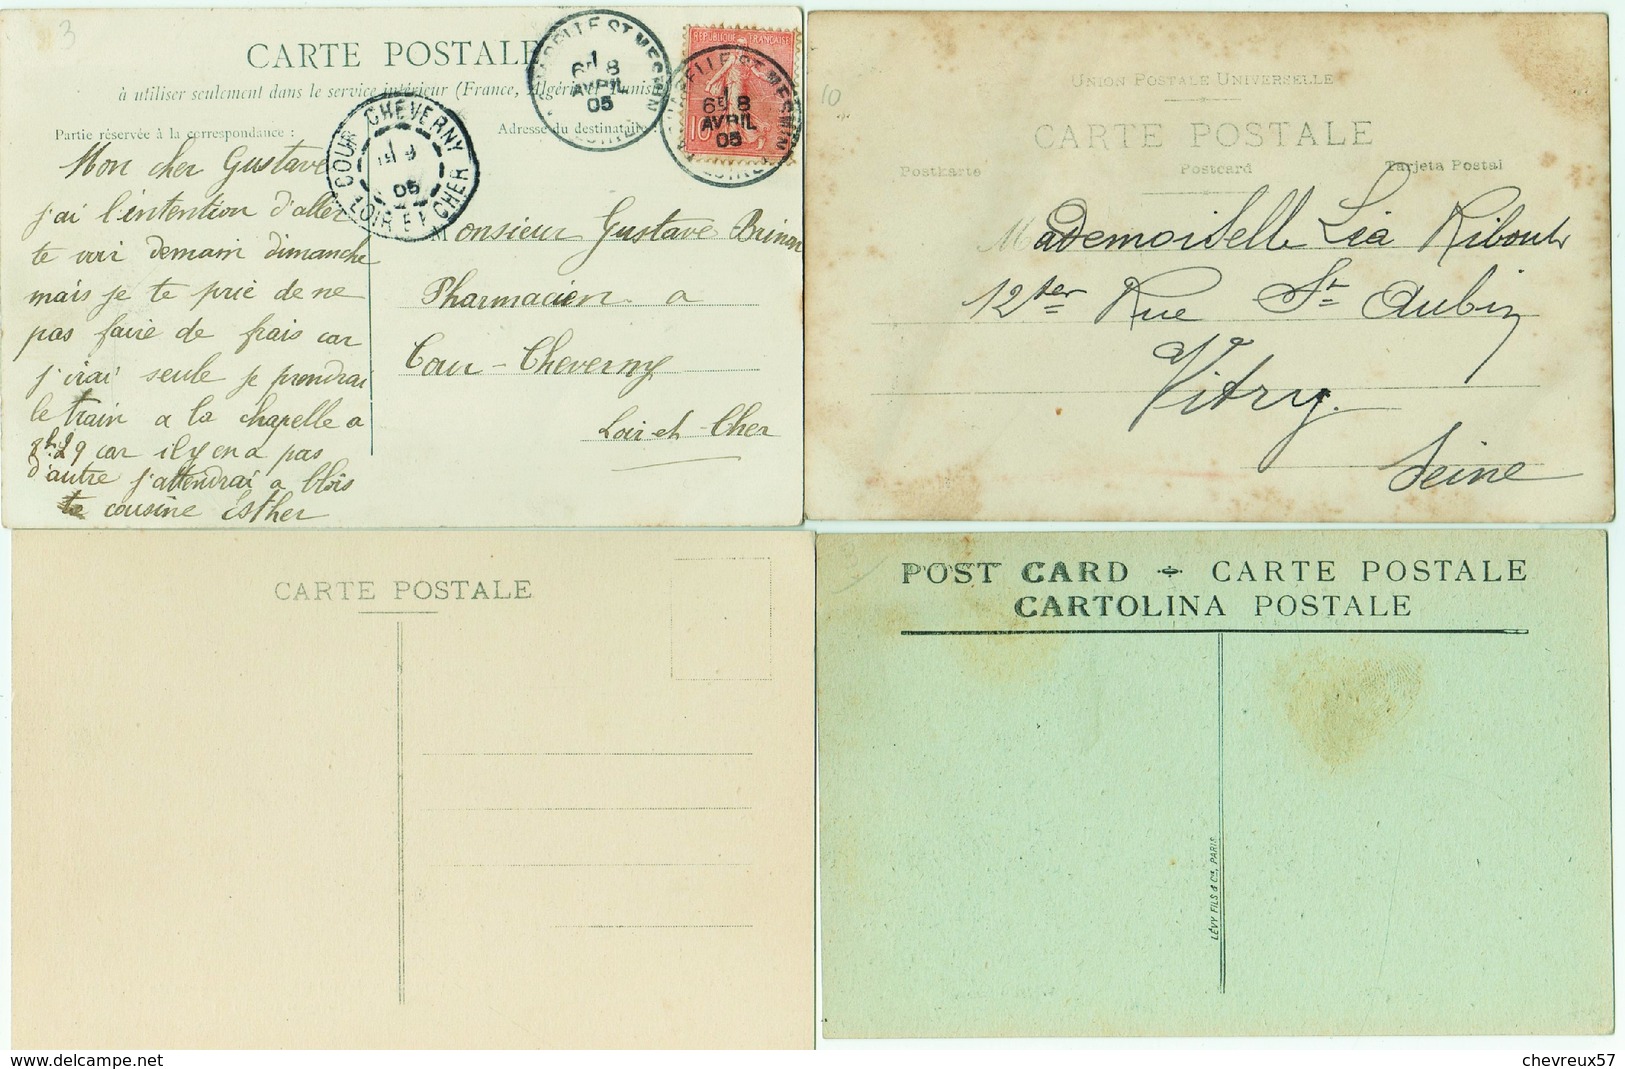 3
CARTE POSTALE
à utiliser seulement dans le service intérieur (France, Algérie et Tunisie
Partie réservée à la correspondance :
Adresse du destinataire :
LA CHAPELLE ST MESMIN
6E 8
AVRIL
05
LOIRET
RÉPUBLIQUE FRANÇAISE
10
6E 8
AVRIL
05
COUR CHEVERNY
05
LOIR ET CHER
Mon cher Gustave
j'ai l'intention d'aller
te voir demain dimanche
mais je te prie de ne
pas faire de frais car
j'irai seule je prendrai
le train a la chapelle a
8h.29 car il y en a pas
d'autre j'attendrai a blois
ta cousine Esther
Monsieur Gustave Brinon
Pharmacien a
Cour-Cheverny
Loir-et-Cher
10
UNION POSTALE UNIVERSELLE
CARTE POSTALE
Postkarte Postcard Tarjeta Postal
Mademoiselle Léa Riboult
12 ter Rue St Aubin
Vitry.
Seine
CARTE POSTALE
POST CARD ÷ CARTE POSTALE
CARTOLINA POSTALE
LÉVY FILS & Cie, PARIS
www.delcampe.net
chevreux57